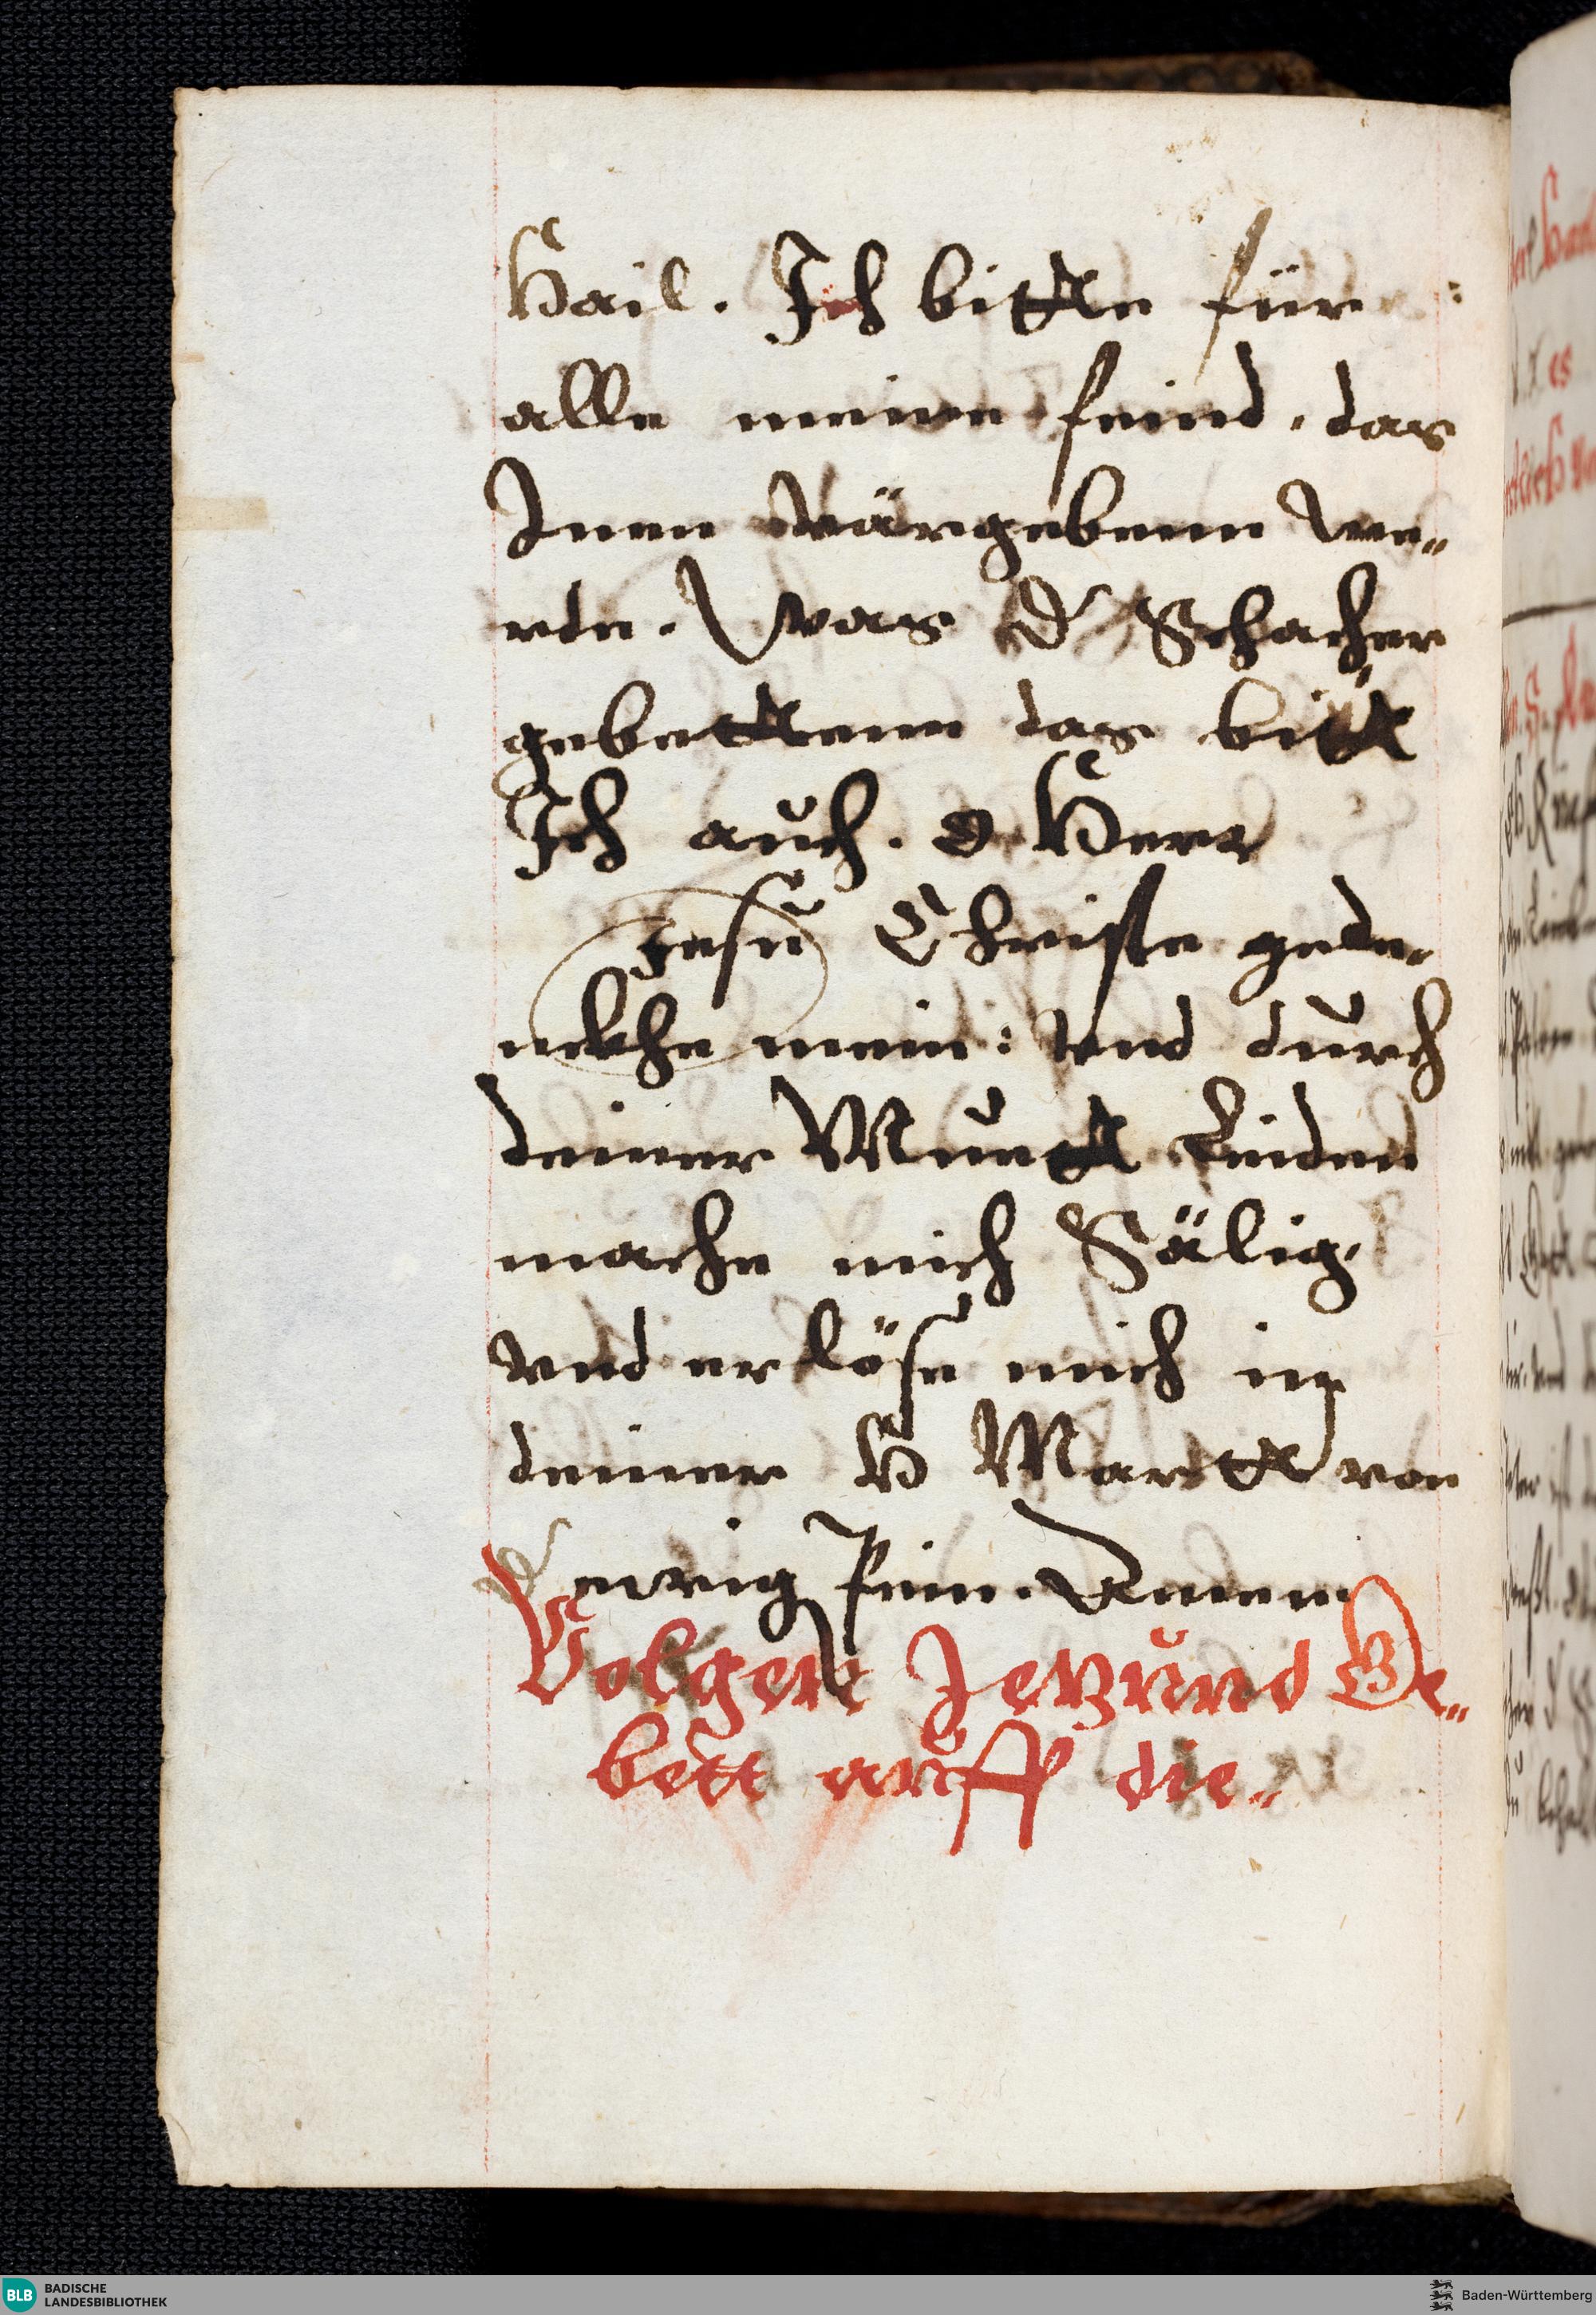 Hail. Ich bitte für
alle meine feind, das
Inen värgebenn we„
rde. Was d' Schacher
gebettenn das bitt
Ich auch. O Herr
Jesu Christe gede„
nckhe mein: vnd durch
deiner Muett Leiden
mache mich Sälig,
vnd erlöse mich in
deiner H Martt von
d' ewig Pein. Amen.
Volgen Jetzund Ge„
bett auff die„
BLB BADISCHE
LANDESBIBLIOTHEK
Baden-Württemberg